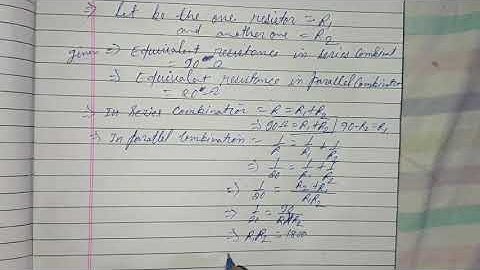 ⇒ Let be the one resistor = R1
and another one = R2
given ⇒ Equivalent resistance in series Combinat
= 90 Ω
⇒ Equivalent resistance in parallel Combination
= 20 Ω
⇒ In Series Combination = R = R1+R2
⇒ 90 = R1+R2 | 90-R2 = R1
⇒ In parallel Combination :- 1/R = 1/R1 + 1/R2
⇒ 1/20 = 1/R1 + 1/R2
⇒ 1/20 = R2+R1/R1R2
⇒ 1/20 = 90/R1R2
⇒ R1R2 = 1800